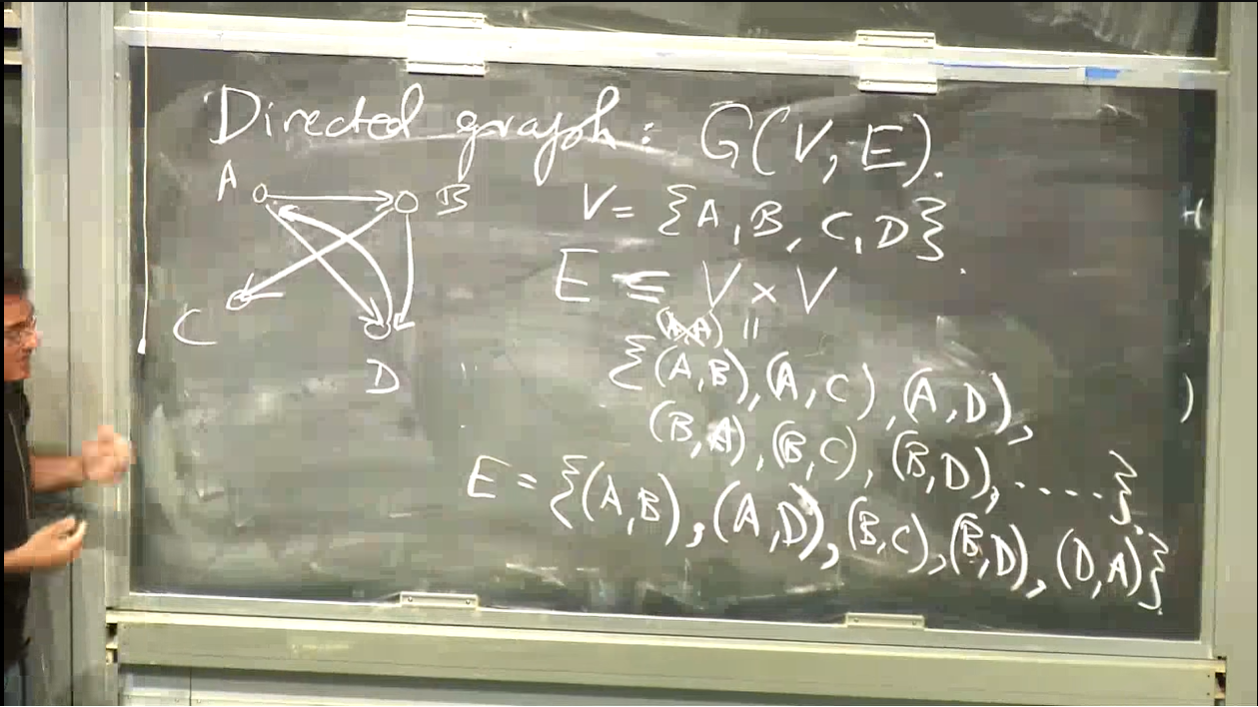 Directed graph: G(V, E).
A B
V = {A, B, C, D}.
E ⊆ V × V
C
(A,A) ||
D
{(A,B), (A,C), (A,D),
(B,A), (B,C), (B,D), .....}.
E = {(A,B), (A,D), (B,C), (B,D), (D,A)}.